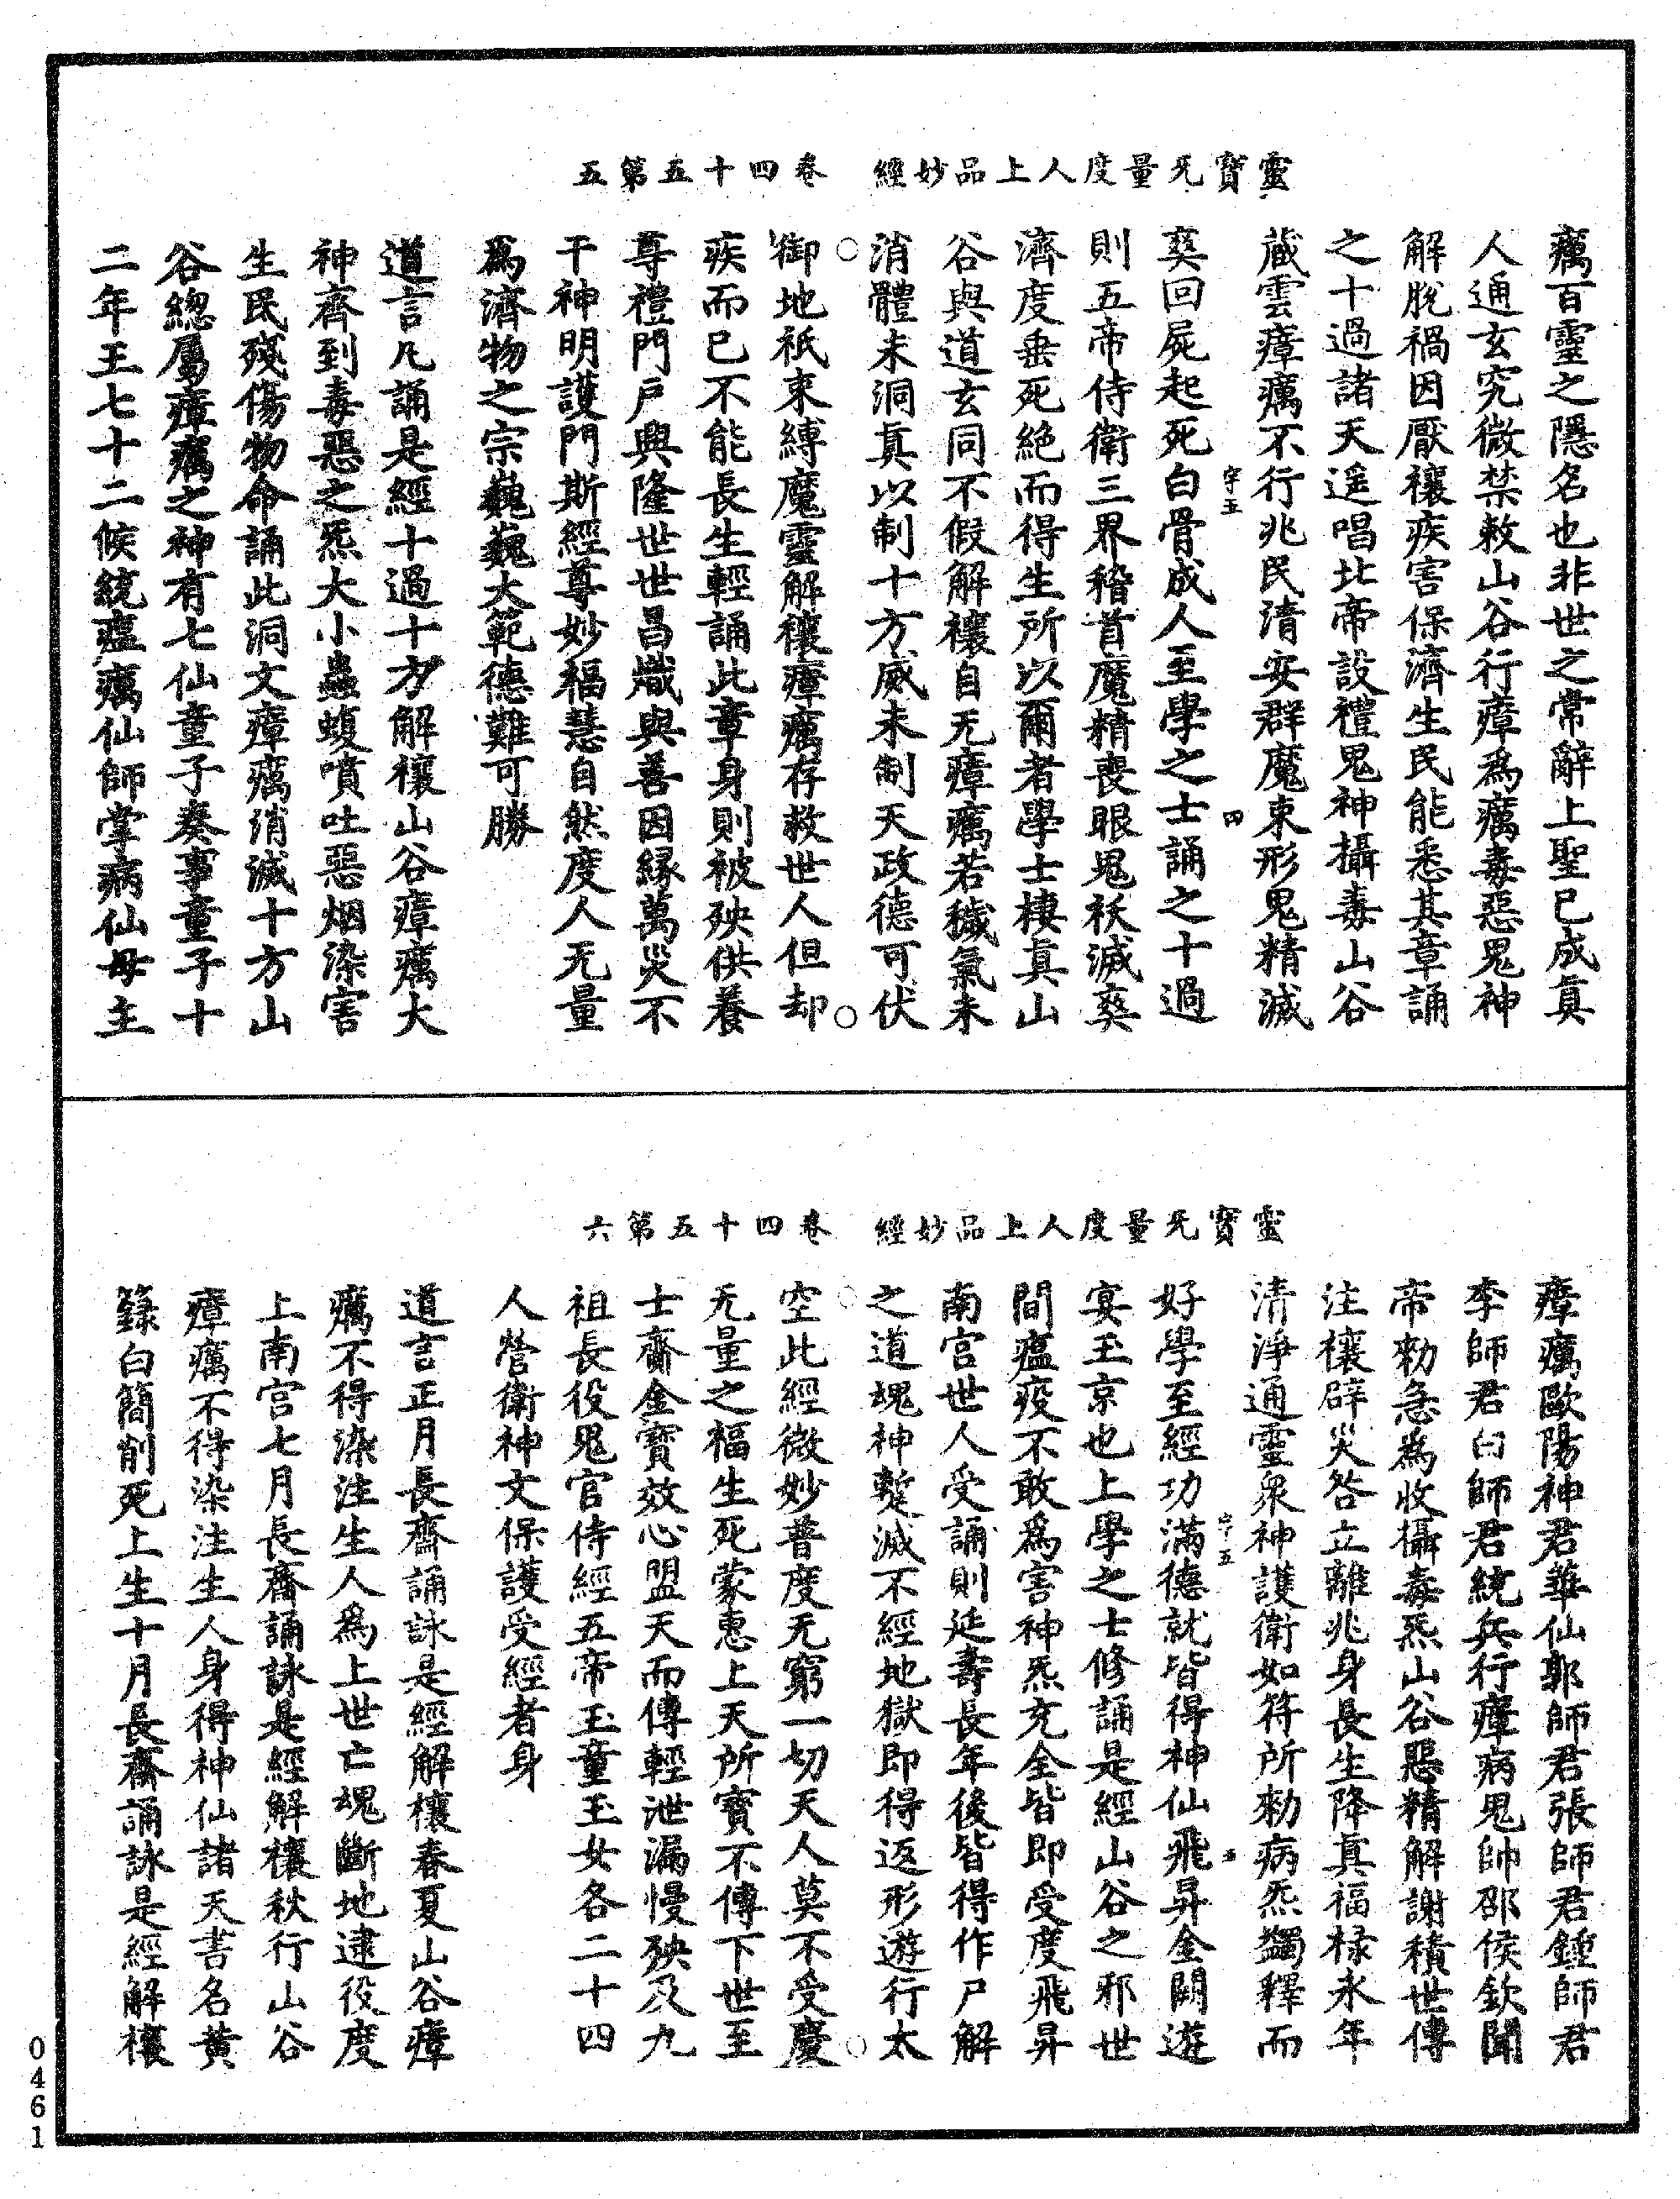 靈寶无量度人上品妙經　卷四十五第五
癘百靈之隱名也非世之常辭上聖已成真
人通玄究微禁敕山谷行瘴為癘毒惡鬼神
解脫禍因厭禳疾害保濟生民能悉其章誦
之十過諸天遥唱北帝設禮鬼神攝毒山谷
蔵雲瘴癘不行兆民清安群魔束形鬼精滅
宇五　四
奕回屍起死白骨成人至學之士誦之十過
則五帝侍衛三界稽首魔精喪眼鬼袄滅奕
濟度垂死絕而得生所以爾者學士棲真山
谷與道玄同不假解禳自无瘴癘若穢氣未
消體未洞真以制十方威未制天政德可伏
御地祇束縛魔靈解禳瘴癘存救世人但却
疾而已不能長生輕誦此章身則被殃供養
尊禮門戶興隆世世昌熾與善因緣萬災不
干神明護門斯經尊妙福慧自然度人无量
為濟物之宗巍巍大範德難可勝
道言凡誦是經十過十方解禳山谷瘴癘大
神齊到毒惡之炁大小蟲蝮噴吐惡烟染害
生民殘傷物命誦此洞文瘴癘消滅十方山
谷總屬瘴癘之神有七仙童子奏事童子十
二年王七十二候統瘟癘仙師掌病仙母主
靈寶无量度人上品妙經　卷四十五第六
瘴癘歐陽神君華仙郭師君張師君鍾師君
李師君白師君統兵行瘴病鬼帥邵侯欽聞
帝勑急為收攝毒炁山谷惡精解謝積世傳
注禳辟災咎立離兆身長生降真福祿永年
清淨通靈衆神護衛如符所勑病炁蠲釋而
宇五　五
好學至經功滿德就皆得神仙飛昇金闕遊
宴玉京也上學之士修誦是經山谷之邪世
間瘟疫不敢為害神炁充全皆即受度飛昇
南宮世人受誦則延壽長年後皆得作尸解
之道魂神蹔滅不經地獄即得返形遊行太
空此經微妙普度无窮一切天人莫不受慶
无量之福生死蒙惠上天所寶不傳下世至
士齎金寶效心盟天而傳輕泄漏慢殃及九
祖長役鬼官侍經五帝玉童玉女各二十四
人營衛神文保護受經者身
道言正月長齋誦詠是經解禳春夏山谷瘴
癘不得染注生人為上世亡魂斷地逮役度
上南宮七月長齋誦詠是經解禳秋行山谷
瘴癘不得染注生人身得神仙諸天書名黃
籙白簡削死上生十月長齋誦詠是經解禳
0461